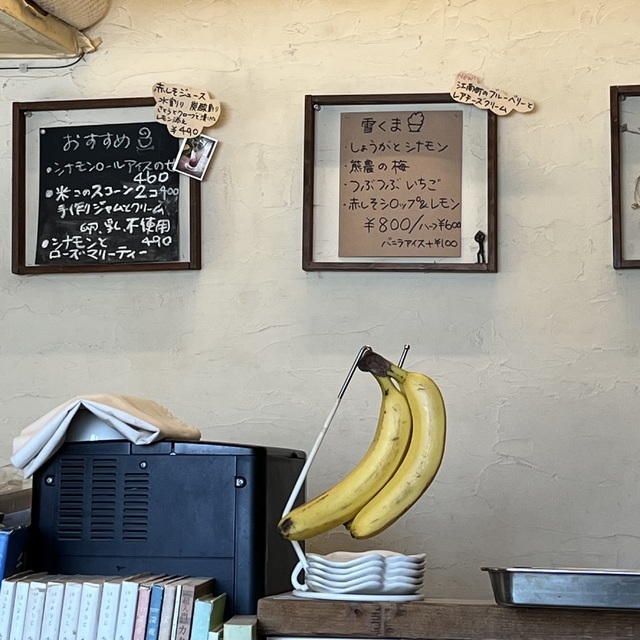 おすすめ
・シナモンロールアイスのせ
460
・米コのスコーン2コ400
手作りジャムとクリーム
卵、乳、不使用
・シナモンと 490
ローズマリーティー
赤しそジュース
水割り 炭酸割り
さとうとクローブと漬けた
レモン添え
¥440
雪くま
・しょうがとシナモン
・熊農の梅
・つぶつぶいちご
・赤しそシロップ&レモン
¥800/ハーフ¥600
バニラアイス+¥100
NEW!
江南町のブルーベリーと
レアチーズクリーム